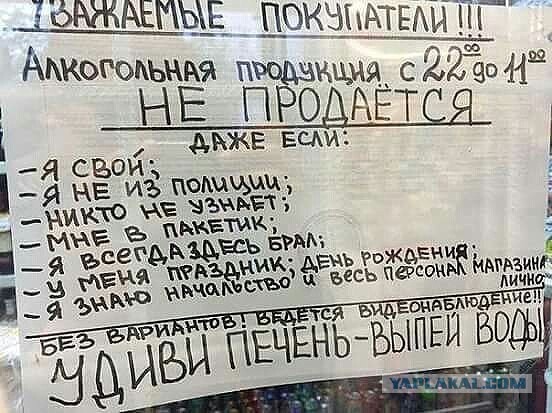 УВАЖАЕМЫЕ ПОКУПАТЕЛИ!!!
АЛКОГОЛЬНАЯ ПРОДУКЦИЯ С 22⁰⁰ до 11⁰⁰
НЕ ПРОДАЁТСЯ
ДАЖЕ ЕСЛИ:
- Я СВОЙ;
- Я НЕ ИЗ ПОЛИЦИИ;
- НИКТО НЕ УЗНАЕТ;
- МНЕ В ПАКЕТИК;
- Я ВСЕГДА ЗДЕСЬ БРАЛ;
- У МЕНЯ ПРАЗДНИК; ДЕНЬ РОЖДЕНИЯ;
- Я ЗНАЮ НАЧАЛЬСТВО И ВЕСЬ ПЕРСОНАЛ МАГАЗИНА
ЛИЧНО
БЕЗ ВАРИАНТОВ! ВЕДЁТСЯ ВИДЕОНАБЛЮДЕНИЕ!!
УДИВИ ПЕЧЕНЬ-ВЫПЕЙ ВОДЫ
YAPLAKAL.COM